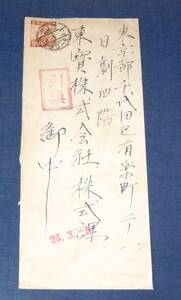 東京都千代田区有楽町二ノ一
日劇四階
東寳株式会社株式課
御中
26.3.